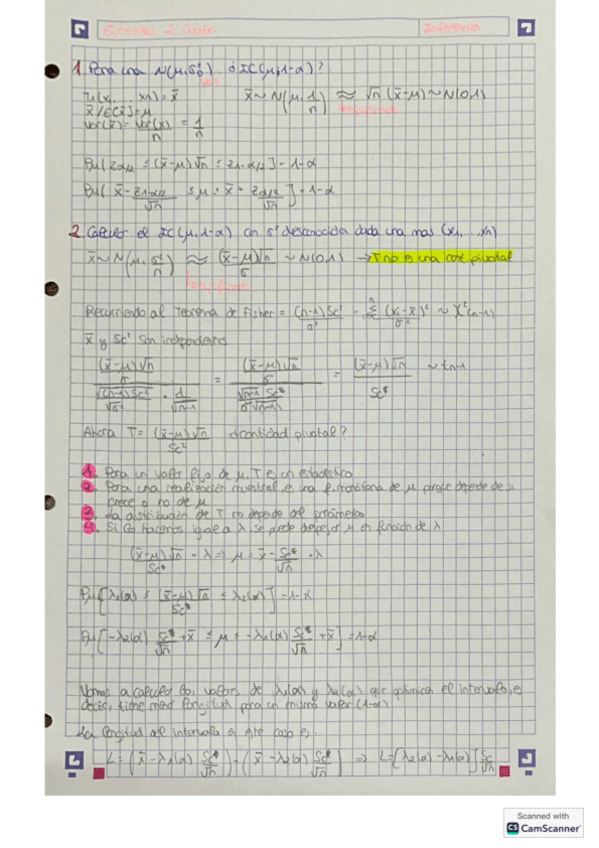 Ejercicios 2º Parcial Inferencia
1. Para una N(μ, σ²) ¿ IC(μ, 1-α)?
Tμ(x1, ... xn) = x̄ x̄ ~ N(μ, 1/n) ≈ √n (x̄-μ) ~ N(0,1)
x̄ / E[x̄] = μ
Var(x̄) = Var(x)/n = 1/n
Pμ[Zα/2 ≤ (x̄-μ)√n ≤ Z1-α/2] = 1-α
Pμ[x̄ - Z1-α/2/√n ≤ μ ≤ x̄ - Zα/2/√n] = 1-α
2. Calcular el IC(μ, 1-α) con σ² desconocida dada una mas (x1, ..., xn)
x̄ ~ N(μ, σ²/n) ≈ (x̄-μ)√n/σ ~ N(0,1) → T no es una cant. pivotal
Recurriendo al Teorema de Fisher = (n-1)Sc²/σ² = Σ (xi-x̄)²/σ² ~ χ²(n-1)
x̄ y Sc² son independientes
(x̄-μ)√n/σ / √(n-1)Sc²/√σ² · 1/√n-1 = (x̄-μ)√n/σ / √n-1 Sc/σ√n-1 = (x̄-μ)√n/Sc ~ tn-1
Ahora T = (x̄-μ)√n/Sc² ¿cantidad pivotal?
1. Para un valor fijo de μ, T es un estadístico
2. Para una realización muestral, es una f. monótona de μ porque depende de si
crece o no de μ
3. La distribución de T no depende del parámetro
4. Si los hacemos igual a λ, se puede despejar μ en función de λ
(x̄-μ)√n/Sc = λ ⇒ μ = x̄ - Sc/√n · λ
Pμ[λ1(α) ≤ (x̄-μ)√n/Sc ≤ λ2(α)] = 1-α
Pμ[-λ2(α) Sc/√n + x̄ ≤ μ ≤ -λ1(α) Sc/√n + x̄] = 1-α
Vamos a calcular los valores de λ1(α) y λ2(α) que optimicen el intervalo, es
decir, tiene menor longitud para un mismo valor (1-α)
La longitud del intervalo en este caso es:
L = (x̄ - λ1(α) Sc/√n) - (x̄ - λ2(α) Sc/√n) ⇒ L = [λ2(α) - λ1(α)] Sc/√n
Scanned with
CS CamScanner